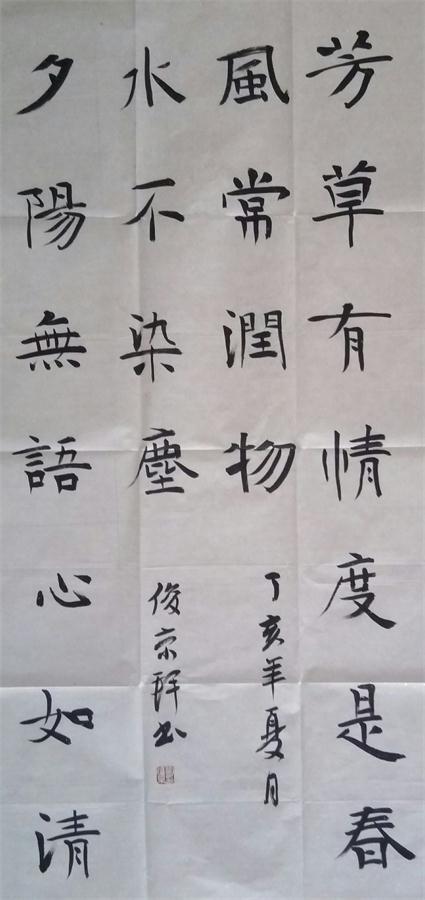 芳草有情度是春
風常潤物
丁亥年夏月
夕陽無語心如清
水不染塵
俊京书